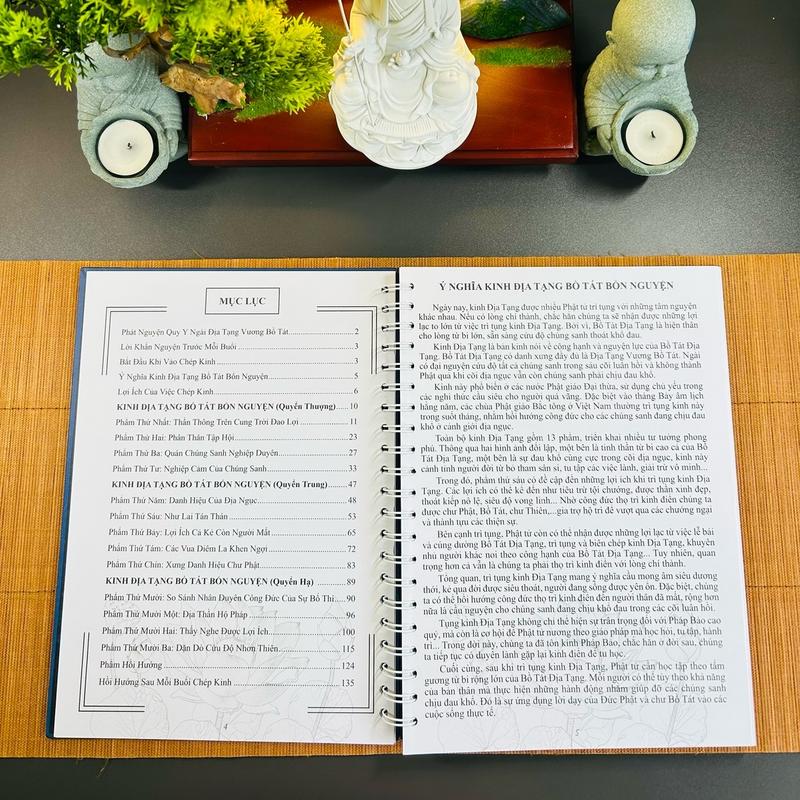 MỤC LỤC
Phát Nguyện Quy Y Ngài Địa Tạng Vương Bồ Tát 2
Lời Khấn Nguyện Trước Mỗi Buổi 3
Bắt Đầu Khi Vào Chép Kinh 3
Ý Nghĩa Kinh Địa Tạng Bồ Tát Bổn Nguyện 5
Lợi Ích Của Việc Chép Kinh 6
KINH ĐỊA TẠNG BỒ TÁT BỔN NGUYỆN (Quyển Thượng) 10
Phẩm Thứ Nhất: Thần Thông Trên Cung Trời Đao Lợi 11
Phẩm Thứ Hai: Phân Thân Tập Hội 23
Phẩm Thứ Ba: Quán Chúng Sanh Nghiệp Duyên 27
Phẩm Thứ Tư: Nghiệp Cảm Của Chúng Sanh 33
KINH ĐỊA TẠNG BỒ TÁT BỔN NGUYỆN (Quyển Trung) 47
Phẩm Thứ Năm: Danh Hiệu Của Địa Ngục 48
Phẩm Thứ Sáu: Như Lai Tán Thán 53
Phẩm Thứ Bảy: Lợi Ích Cả Kẻ Còn Người Mất 65
Phẩm Thứ Tám: Các Vua Diêm La Khen Ngợi 72
Phẩm Thứ Chín: Xưng Danh Hiệu Chư Phật 83
KINH ĐỊA TẠNG BỒ TÁT BỔN NGUYỆN (Quyển Hạ) 89
Phẩm Thứ Mười: So Sánh Nhân Duyên Công Đức Của Sự Bố Thí 90
Phẩm Thứ Mười Một: Địa Thần Hộ Pháp 96
Phẩm Thứ Mười Hai: Thấy Nghe Được Lợi Ích 100
Phẩm Thứ Mười Ba: Dặn Dò Cứu Độ Nhơn Thiên 115
Phẩm Hồi Hướng 124
Hồi Hướng Sau Mỗi Buổi Chép Kinh 135
4
Ý NGHĨA KINH ĐỊA TẠNG BỒ TÁT BỔN NGUYỆN
Ngày nay, kinh Địa Tạng được nhiều Phật tử trì tụng với những tâm nguyện
khác nhau. Nếu có lòng chí thành, chắc hẳn chúng ta sẽ nhận được những lợi
lạc to lớn từ việc trì tụng kinh Địa Tạng. Bởi vì, Bồ Tát Địa Tạng là hiện thân
cho lòng từ bi lớn, sẵn sàng cứu độ chúng sanh thoát khổ đau.
Kinh Địa Tạng là bản kinh nói về công hạnh và nguyện lực của Bồ Tát Địa
Tạng. Bồ Tát Địa Tạng có danh xưng đầy đủ là Địa Tạng Vương Bồ Tát. Ngài
có đại nguyện cứu độ tất cả chúng sanh trong sáu cõi luân hồi và không thành
Phật quả khi cõi địa ngục vẫn còn chúng sanh phải chịu đau khổ.
Kinh này phổ biến ở các nước Phật giáo Đại thừa, sử dụng chủ yếu trong
các nghi thức cầu siêu cho người quá vãng. Đặc biệt vào tháng Bảy âm lịch
hằng năm, các chùa Phật giáo Bắc tông ở Việt Nam thường trì tụng kinh này
trong suốt tháng, nhằm hồi hướng công đức cho các chúng sanh đang chịu đau
khổ ở cảnh giới địa ngục.
Toàn bộ kinh Địa Tạng gồm 13 phẩm, triển khai nhiều tư tưởng phong
phú. Thông qua hai hình ảnh đối lập, một bên là tinh thần từ bi cao cả của Bồ
Tát Địa Tạng, một bên là sự đau khổ cùng cực trong cõi địa ngục, kinh này
cảnh tỉnh người đời từ bỏ tham sân si, tu tập các việc lành, giải trừ vô minh...
Trong đó, phẩm thứ sáu có đề cập đến những lợi ích khi trì tụng kinh Địa
Tạng. Các lợi ích có thể kể đến như tiêu trừ tội chướng, được thân xinh đẹp,
thoát kiếp nô lệ, siêu độ vong linh... Nhờ công đức thọ trì kinh điển chúng ta
được chư Phật, Bồ Tát, chư Thiên,...gia trợ hộ trì để vượt qua các chướng ngại
và thành tựu các thiện sự.
Bên cạnh trì tụng, Phật tử còn có thể nhận được những lợi lạc từ việc lễ bái
và cúng dường Bồ Tát Địa Tạng, trì tụng và biên chép kinh Địa Tạng, khuyên
nhủ người khác noi theo công hạnh của Bồ Tát Địa Tạng... Tuy nhiên, quan
trọng hơn cả vẫn là chúng ta phải thọ trì kinh điển với lòng chí thành.
Tổng quan, trì tụng kinh Địa Tạng mang ý nghĩa cầu mong âm siêu dương
thới, kẻ qua đời được siêu thoát, người đang sống được yên ổn. Đặc biệt, chúng
ta có thể hồi hướng công đức thọ trì kinh điển đến người thân đã mất, rộng hơn
nữa là cầu nguyện cho chúng sanh đang chịu khổ đau trong các cõi luân hồi.
Tụng kinh Địa Tạng không chỉ thể hiện sự trân trọng đối với Pháp Bảo cao
quý, mà còn là cơ hội để Phật tử nương theo giáo pháp mà học hỏi, tu tập, hành
trì... Trong đời này, chúng ta đã tôn kính Pháp Bảo, chắc hẳn ở đời sau, chúng
ta tiếp tục có duyên lành gặp lại kinh điển để tu học.
Cuối cùng, sau khi trì tụng kinh Địa Tạng, Phật tử cần học tập theo tấm
gương từ bi rộng lớn của Bồ Tát Địa Tạng. Mỗi người có thể tùy theo khả năng
của bản thân mà thực hiện những hành động nhằm giúp đỡ các chúng sanh
chịu đau khổ. Đó là sự ứng dụng lời dạy của Đức Phật và chư Bồ Tát vào các
cuộc sống thực tế.
5